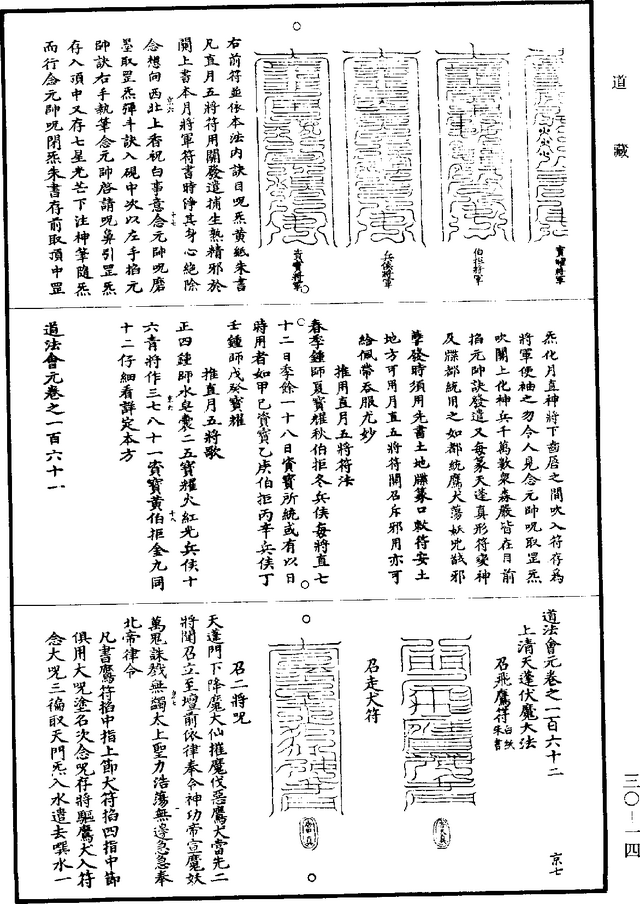 道藏
寶曜將軍
伯拒將軍
兵倓將軍
賨寶將軍
右前符並依本法內訣目呪炁黃紙朱書
凡直月五將符用關發遣捕生熟精邪於
關上書本月將軍符書時淨其身心絶除
念想向西北上香祝白事意念元帥呪磨
墨取罡炁彈斗訣入硯中次以左手掐元
帥訣右手執筆念元帥啓請呪鼻引罡炁
存入頂中又存七星光芒下注神筆隨炁
而行念元帥呪閉炁朱書存前取頂中罡
炁化月直神將下齒唇之間吹入符存爲
將軍便袖之勿令人見念元帥呪取罡炁
吹關上化神兵千萬數衆森嚴皆在目前
掐元帥訣發遣又每篆天蓬真形符變神
及牒都統用之如都統鷹犬蕩妖兇戡邪
孽發時須用先書土地牒篆口敕符安土
地方可用月直五將符關召斥邪用亦可
給佩帶吞服尤妙
推用直月五將符法
春季鍾師夏寶耀秋伯拒冬兵倓每將直七
十二日季餘一十八日賨寶所統或有以日
時用者如甲己賨寶乙庚伯拒丙辛兵倓丁
壬鍾師戊癸寶耀
推直月五將歌
正四鍾師水皂囊二五寶耀火紅光兵倓十
六青將作三七八十一賨寶黃伯拒金九同
十二仔細看詳定本方
道法會元卷之一百六十一
道法會元卷之一百六十二
京七
上清天蓬伏魔大法
召飛鷹符白紙朱書
召走犬符
召二將呪
天蓬門下降魔大仙摧魔伐惡鷹犬當先二
將聞召立至壇前依律奉令神功帝宣魔妖
萬鬼誅戮無蠲太上聖力浩蕩無邊急急奉
北帝律令
凡書鷹符掐中指上節犬符掐四指中節
俱用大呪塗名次念呪存將驅鷹犬入符
念大呪三徧取天門炁入水遣去噀水一
三〇-一四